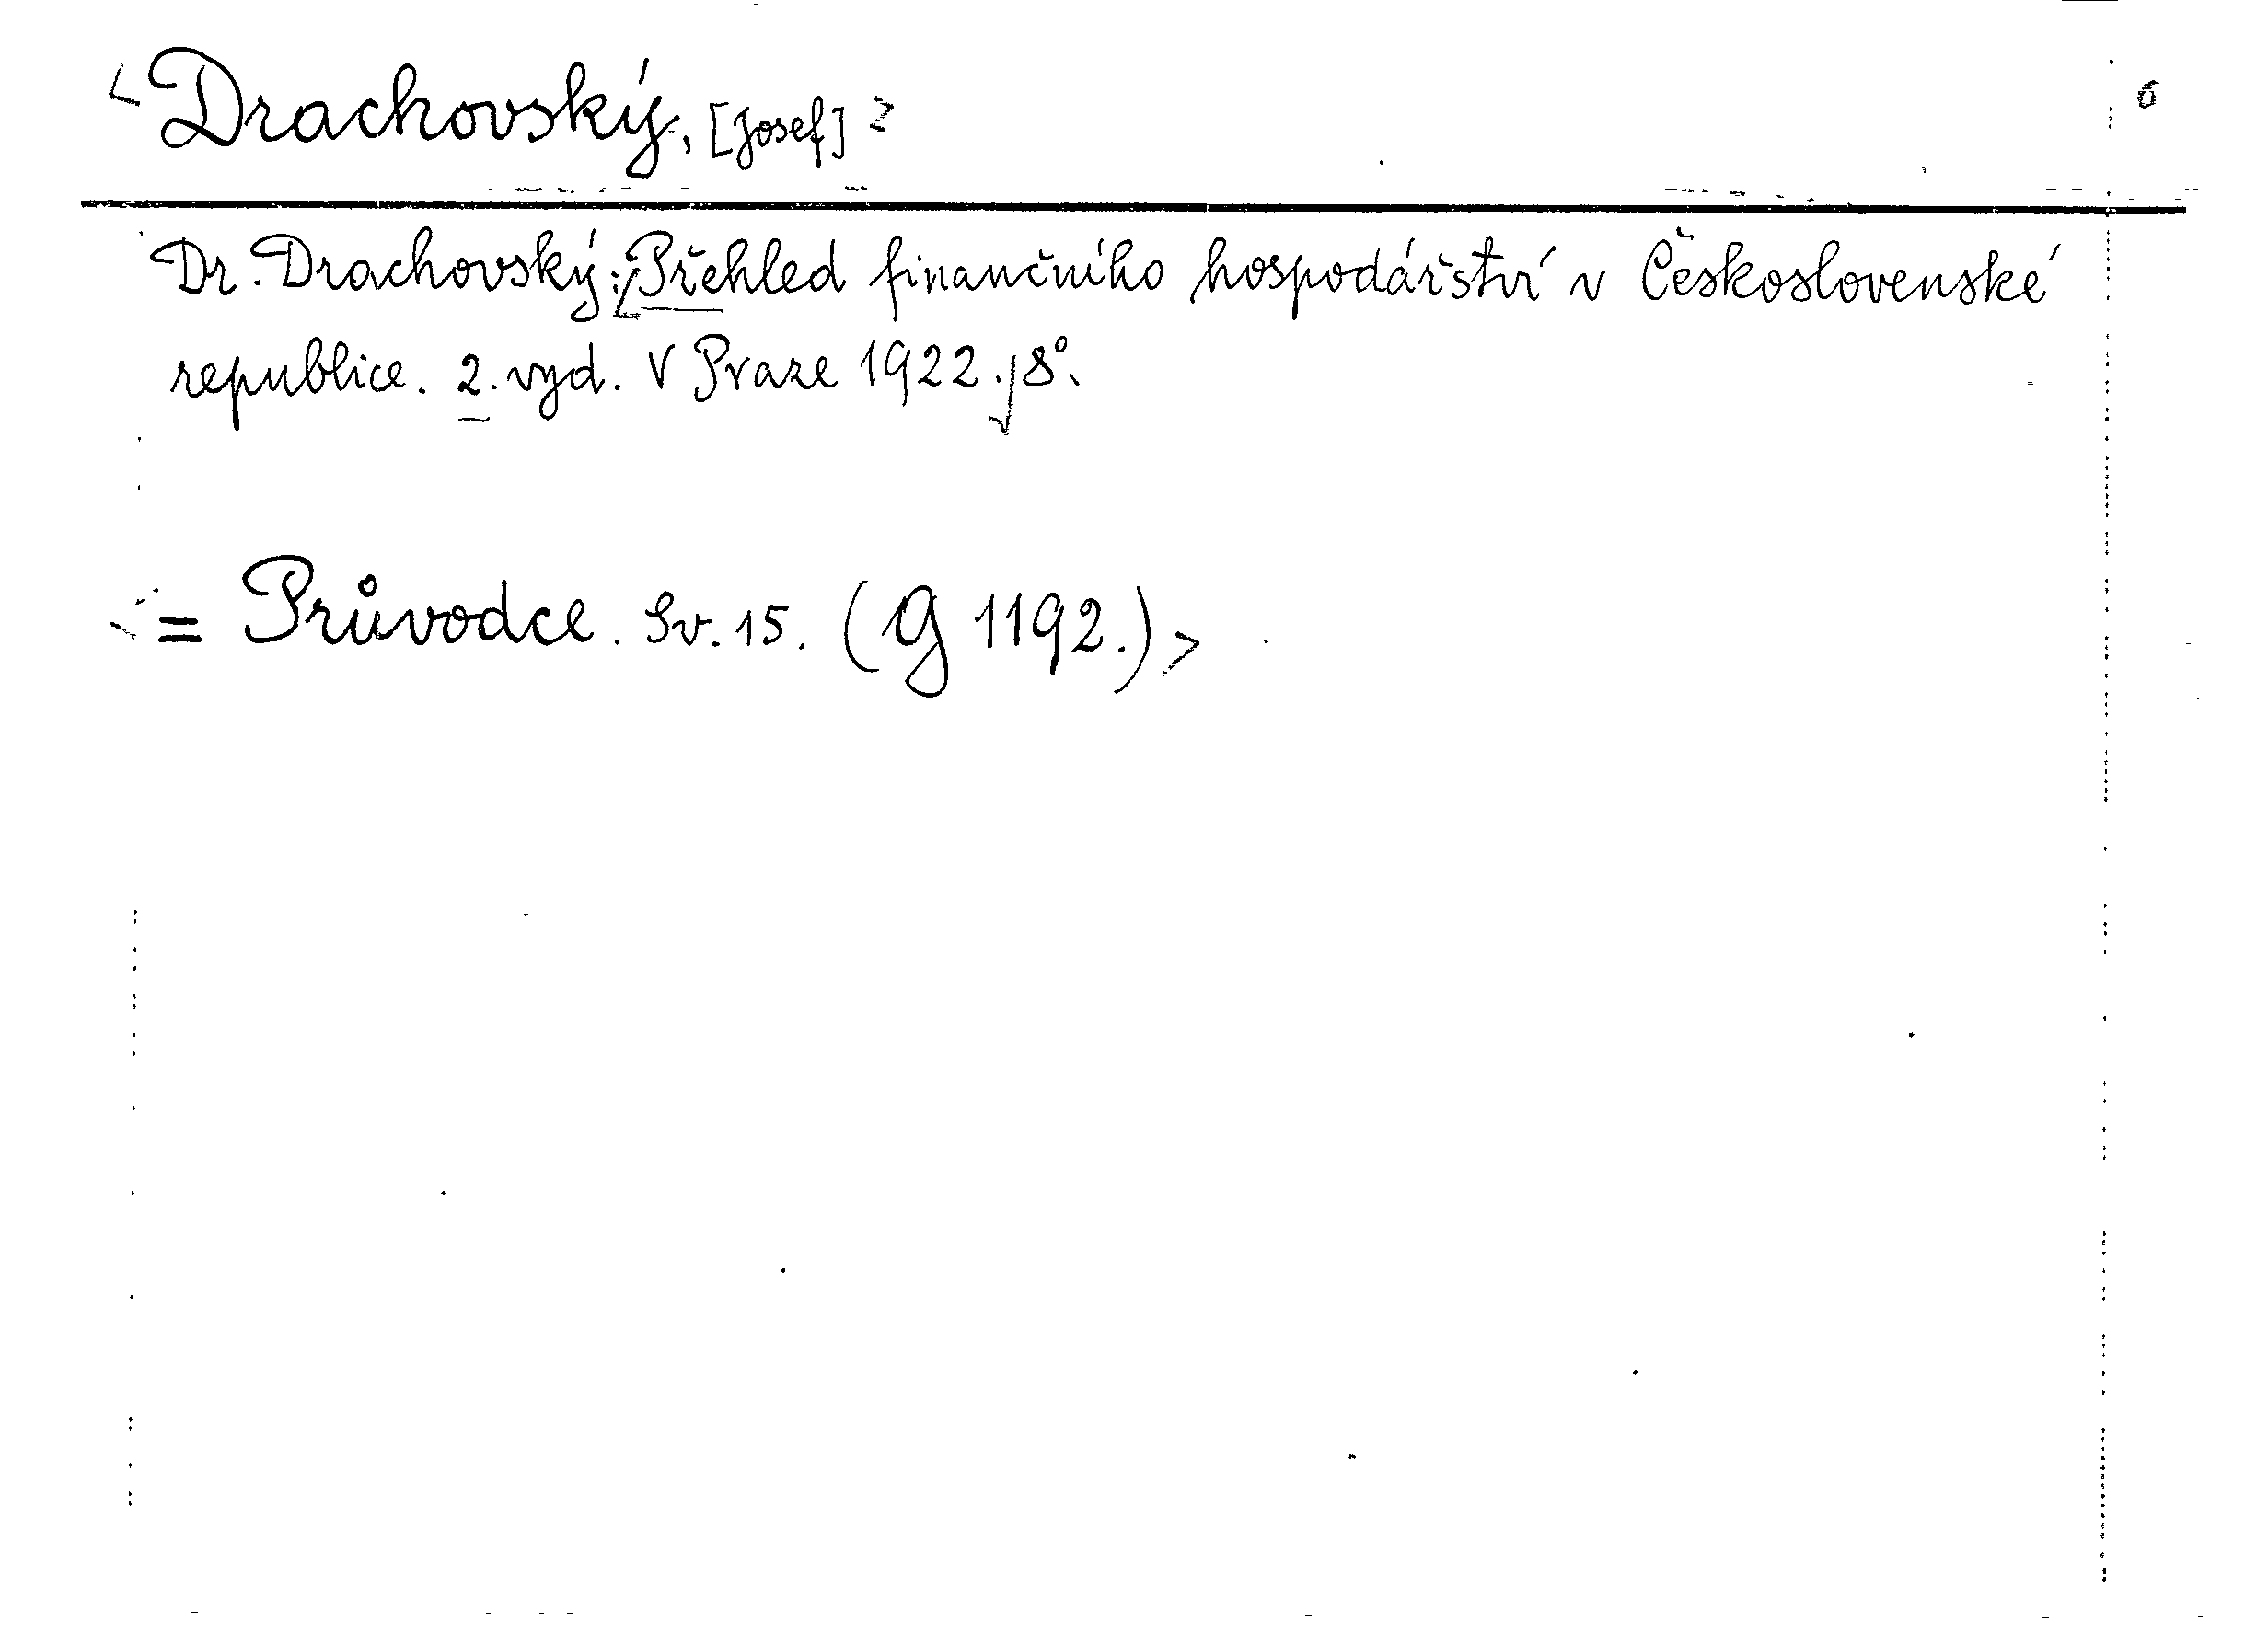 <Drachovský, [Josef]>
6
Dr. Drachovský: Přehled finančního hospodářství v Československé
republice. 2. vyd. V Praze 1922. 8°.
<= Průvodce. Sv. 15. (G 1192.)>